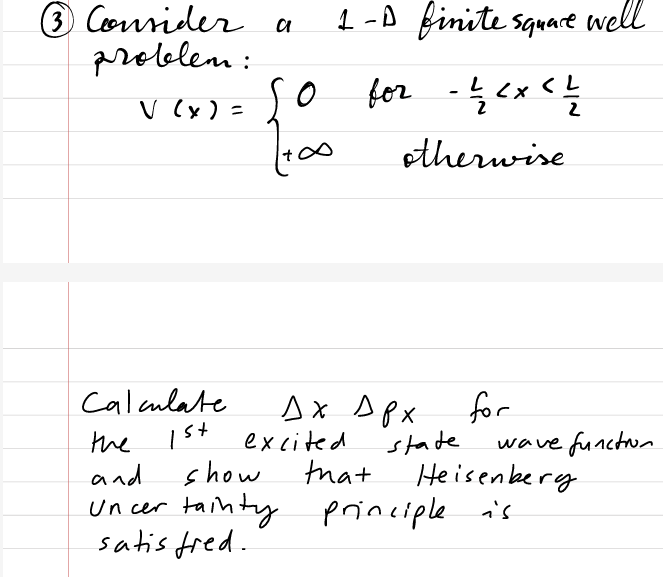 ③ Consider a 1-D finite square well
problem:
V(x) = { 0 for -L/2 < x < L/2
+∞ otherwise
Calculate Δx Δpx for
the 1st excited state wave function
and show that Heisenberg
Uncertainty principle is
satisfied.